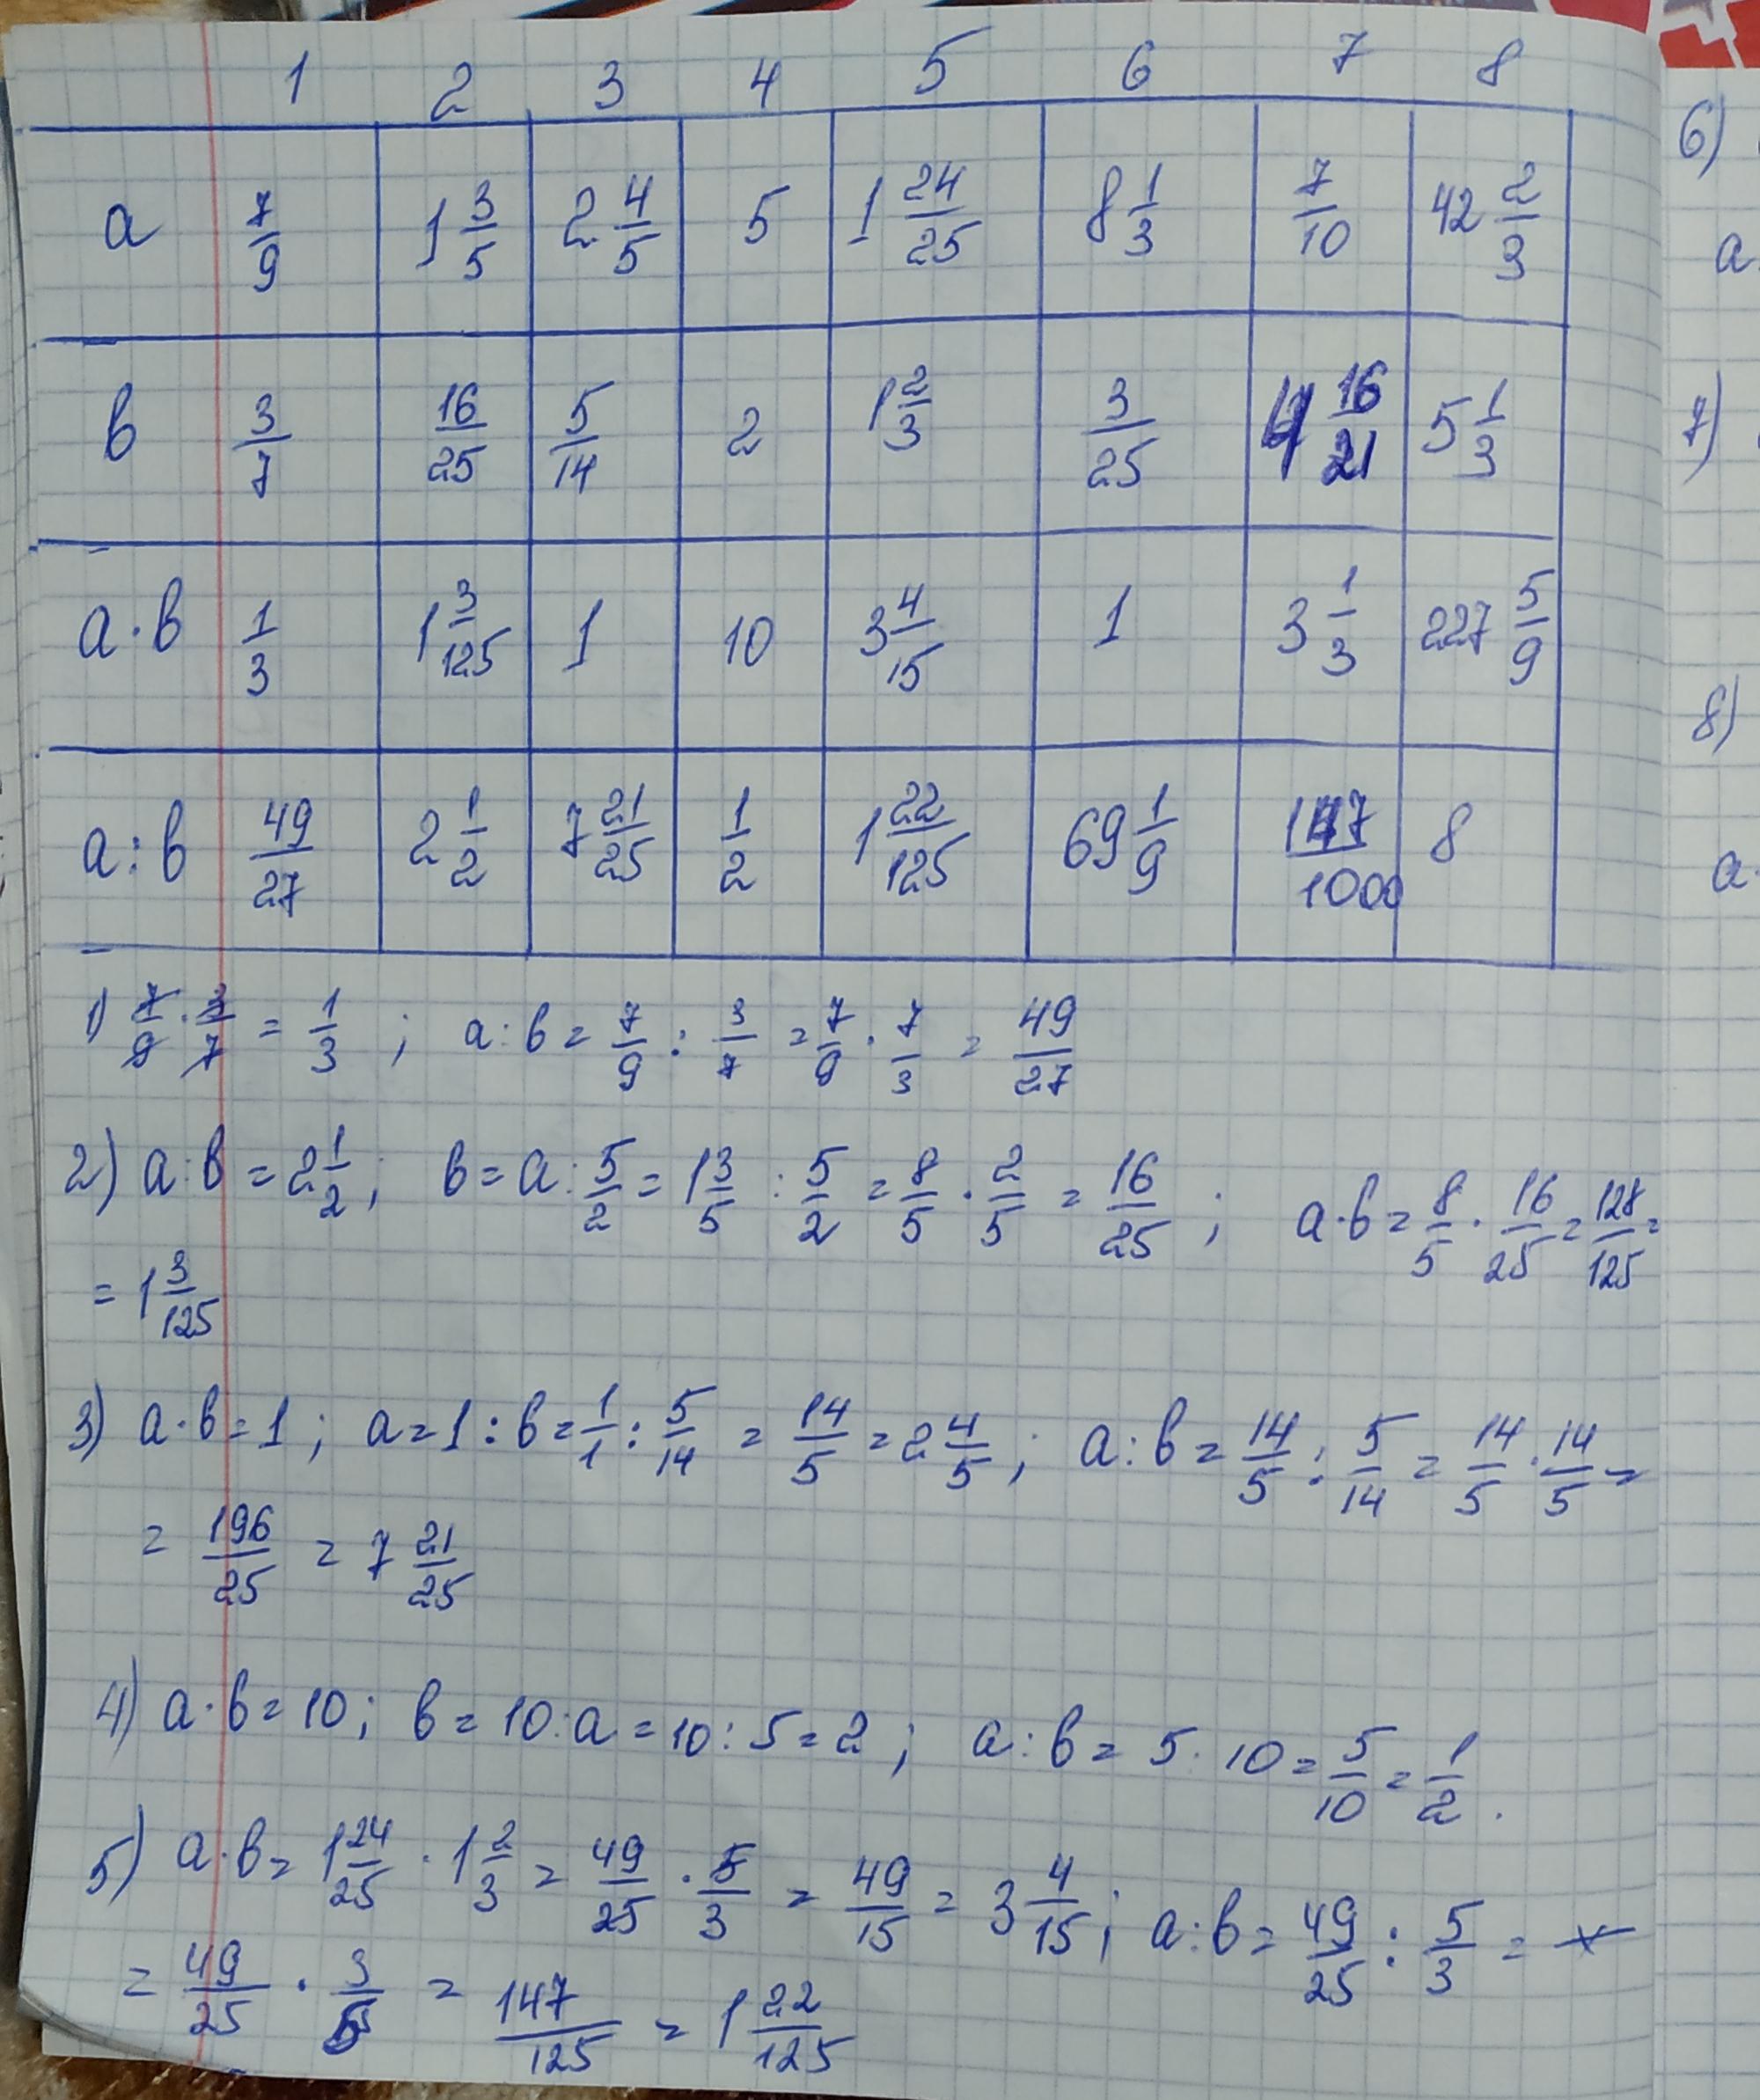 1 2 3 4 5 6 7 8
a 7/9 1 3/5 2 4/5 5 1 24/25 8 1/3 7/10 42 2/3
b 3/7 16/25 5/14 2 1 2/3 3/25 4 16/21 5 1/3
a·b 1/3 1 3/125 1 10 3 4/15 1 3 1/3 227 5/9
a:b 49/27 2 1/2 7 21/25 1/2 1 22/125 69 1/9 147/1000 8
1) 7/9 · 3/7 = 1/3 ; a:b = 7/9 : 3/7 = 7/9 · 7/3 = 49/27
2) a:b = 2 1/2 ; b = a : 5/2 = 1 3/5 : 5/2 = 8/5 · 2/5 = 16/25 ; a·b = 8/5 · 16/25 = 128/125 =
= 1 3/125
3) a·b = 1 ; a = 1 : b = 1/1 : 5/14 = 14/5 = 2 4/5 ; a:b = 14/5 : 5/14 = 14/5 · 14/5 =
= 196/25 = 7 21/25
4) a·b = 10 ; b = 10 : a = 10 : 5 = 2 ; a : b = 5 : 10 = 5/10 = 1/2 .
5) a·b = 1 24/25 · 1 2/3 = 49/25 · 5/3 = 49/15 = 3 4/15 ; a:b = 49/25 : 5/3 =
= 49/25 · 3/5 = 147/125 = 1 22/125
6)
a
7)
8)
a